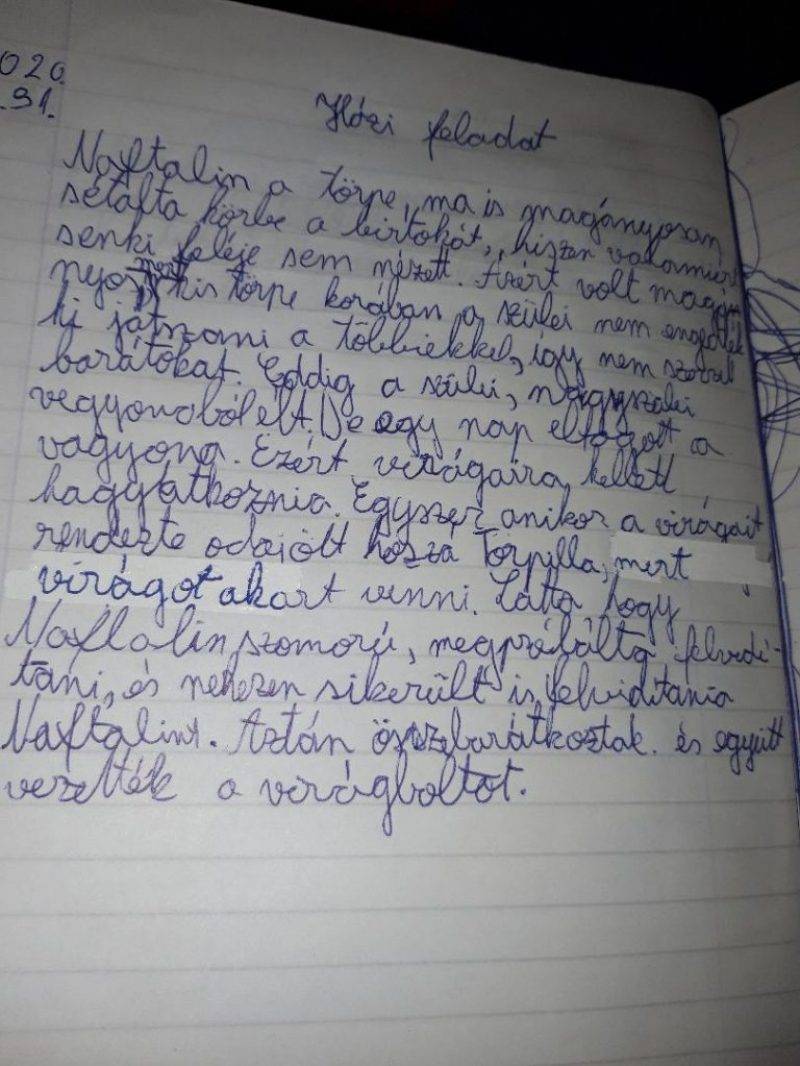 020.
.31.
Házi feladat
Naftalin a törpe, ma is magányosan
sétálta körbe a birtokát, hiszen valamiért
senki feléje sem nézett. Azért volt magá
nyos mert kis törpe korában a szülei nem engedték
ki játszani a többiekkel, így nem szerzett
barátokat. Eddig a szülei, nagyszülei
vagyonából élt. De egy nap elfogott a
vagyona. Ezért virágaira kellett
hagyatkoznia. Egyszer amikor a virágait
rendezte odajött hozzá Törpilla, mert
virágot akart venni. Látta hogy
Naftalin szomorú, megpróbálta felvidí-
tani, és nehezen sikerült is felvidítania
Naftalint. Aztán összebarátkoztak. és együtt
vezették a virágboltot.